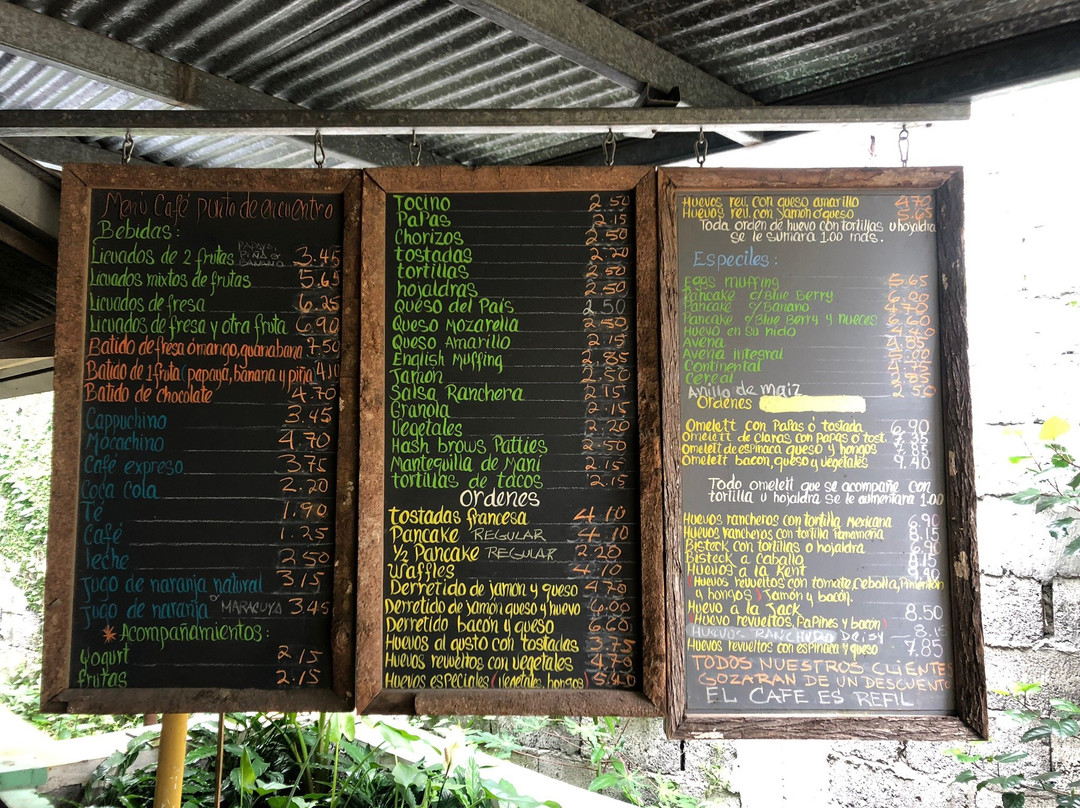 Menú Café punto de encuentro
Bebidas:
Licuados de 2 frutas PAPAYA PIÑA O BANANO 3.45
Licuados mixtos de frutas 5.65
Licuados de fresa 6.25
Licuados de fresa y otra fruta 6.90
Batido de fresa ó mango, guanabana 7.50
Batido de 1 fruta (papaya, banana y piña 4.10
Batido de chocolate 4.70
Cappuchino 3.45
Mocachino 4.70
Café expreso 3.75
Coca cola 2.20
Té 1.90
Café 1.25
leche 2.50
Jugo de naranja natural 3.15
Jugo de naranja o MARACUYA 3.45
*Acompañamientos:
Yogurt 2.15
frutas 2.15
Tocino 2.50
Papas 2.15
Chorizos 2.50
tostadas 2.20
tortillas 2.50
hojaldras 2.50
Queso del País 2.50
Queso Mozarella 2.50
Queso Amarillo 2.15
English Muffing 2.85
Jamon 2.50
Salsa Ranchera 2.15
Granola 2.15
Vegetales 2.20
Hash brows Patties 2.50
Mantequilla de Maní 2.15
tortillas de tacos 2.15
Ordenes
tostadas francesa 4.10
Pancake REGULAR 4.10
1/2 Pancake REGULAR 2.20
Waffles 4.10
Derretido de jamon y queso 4.70
Derretido de Jamon queso y huevo 6.00
Derretido bacon y queso 6.60
Huevos al gusto con tostadas 3.75
Huevos revueltos con vegetales 4.70
Huevos especiales (vegetales, hongos) 5.40
Huevos rev. con queso amarillo 4.70
Huevos rev. con Jamon o queso 5.65
Toda orden de huevo con tortillas u hojaldra
se le sumara 1.00 más.
Especiles:
Eggs muffing 5.65
Pancake c/Blue Berry 6.00
Pancake c/Banano 4.70
Pancake c/Blue Berry y nueces 6.60
Huevo en su nido
Avena
Avena integral
Continental
Cereal
Anillo de maiz 2.50
Ordenes
Omelett con Papas ó tostada 6.90
Omelett de claras con Papas ó tost. 7.35
Omelett de espinaca queso y hongos 7.85
Omelett bacon, queso y vegetales 9.40
Todo omelett que se acompañe con
tortilla u hojaldra se le aumentara 1.00
Huevos rancheros con tortilla mexicana 6.90
Huevos rancheros con tortilla Panameña 8.15
Bisteck con tortillas o hojaldra 6.90
Bisteck a Caballo
Huevos a la Kent
(Huevos revueltos con tomate, Cebolla, Pimenton
y hongos) Jamón y bacon.
Huevo a la Jack 8.50
(Huevo revueltos, Papines y bacon)
HUEVOS RANCHERO Deisy 8.15
Huevos revueltos con espinaca y queso 7.85
TODOS NUESTROS CLIENTES
GOZARAN DE UN DESCUENTO
EL CAFE ES REFIL